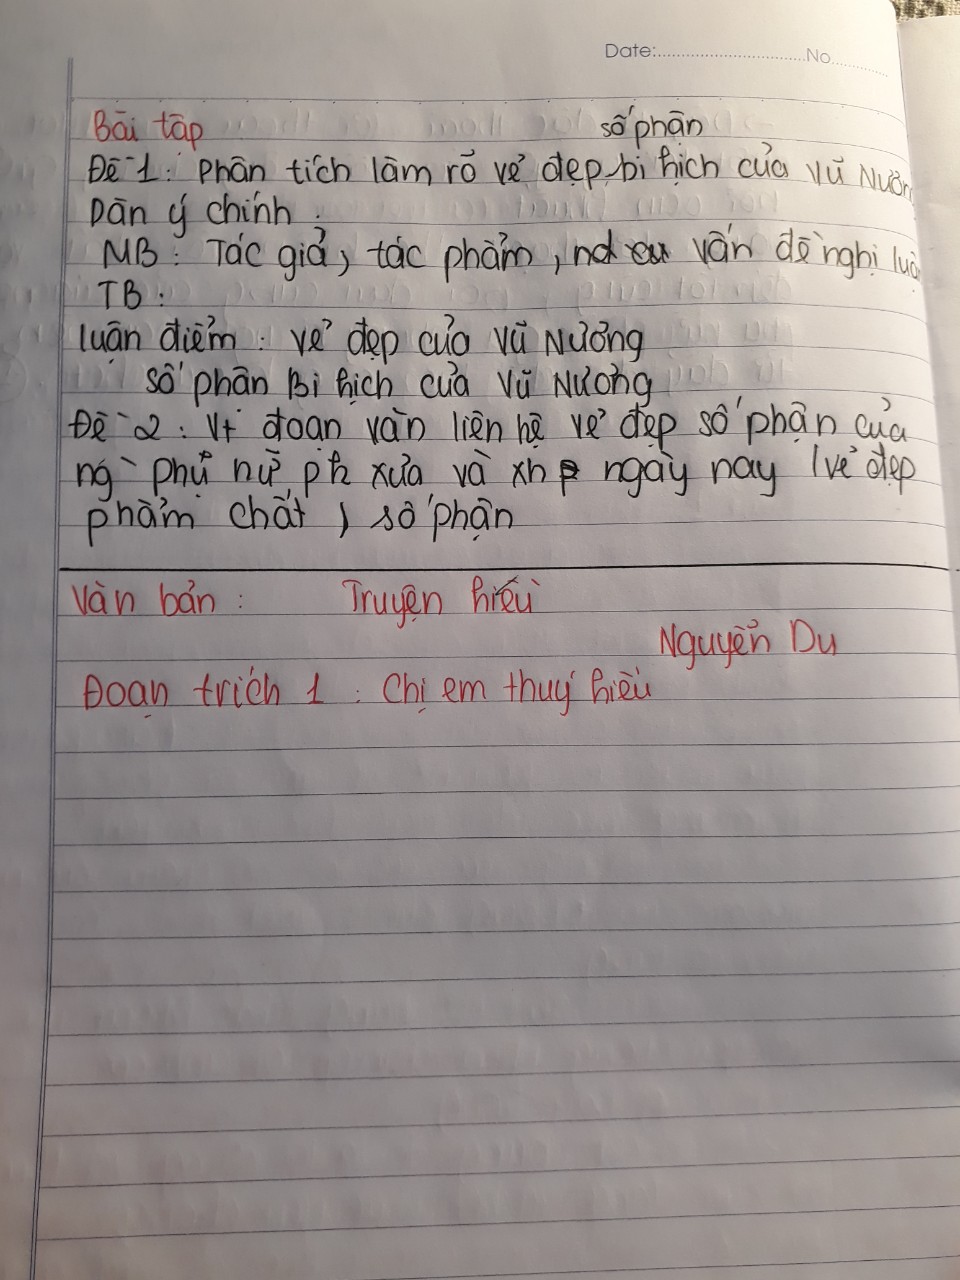 Date:..............................No............
Bài tập
số phận
Đề 1: Phân tích làm rõ vẻ đẹp, bi kịch của Vũ Nương
Dàn ý chính.
MB: Tác giả, tác phẩm, vấn đề nghị luận
TB:
luận điểm: vẻ đẹp của Vũ Nương
số phận Bi kịch của Vũ Nương
Đề 2: Vt đoạn văn liên hệ vẻ đẹp số phận của
ng` phụ nữ pk xưa và xh ngày nay (vẻ đẹp
phẩm chất, số phận
Văn bản: Truyện kiều
Nguyễn Du
Đoạn trích 1: Chị em thuý kiều